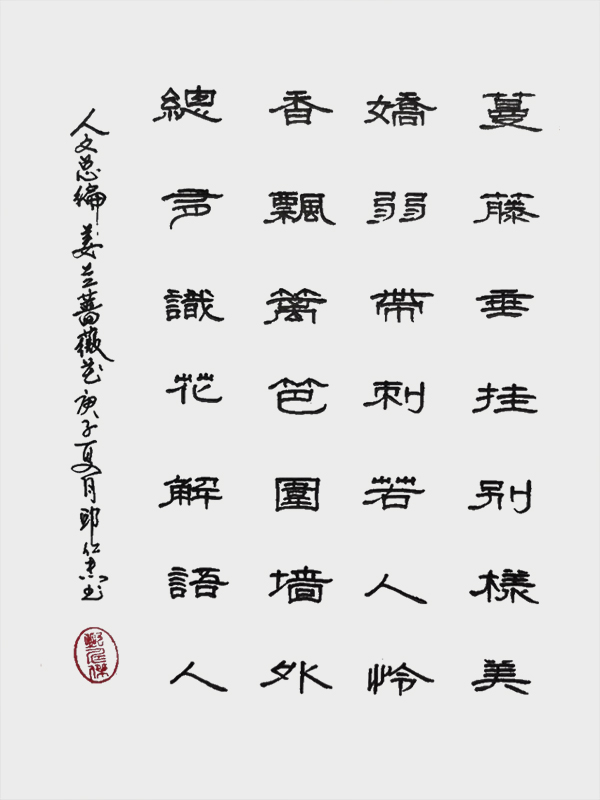 蔓藤垂挂别樣美
嬌弱帶刺若人怜
香飄篱笆圍墙外
總多識花解語人
人文总編姜蔷薇花庚子夏月仁杰书